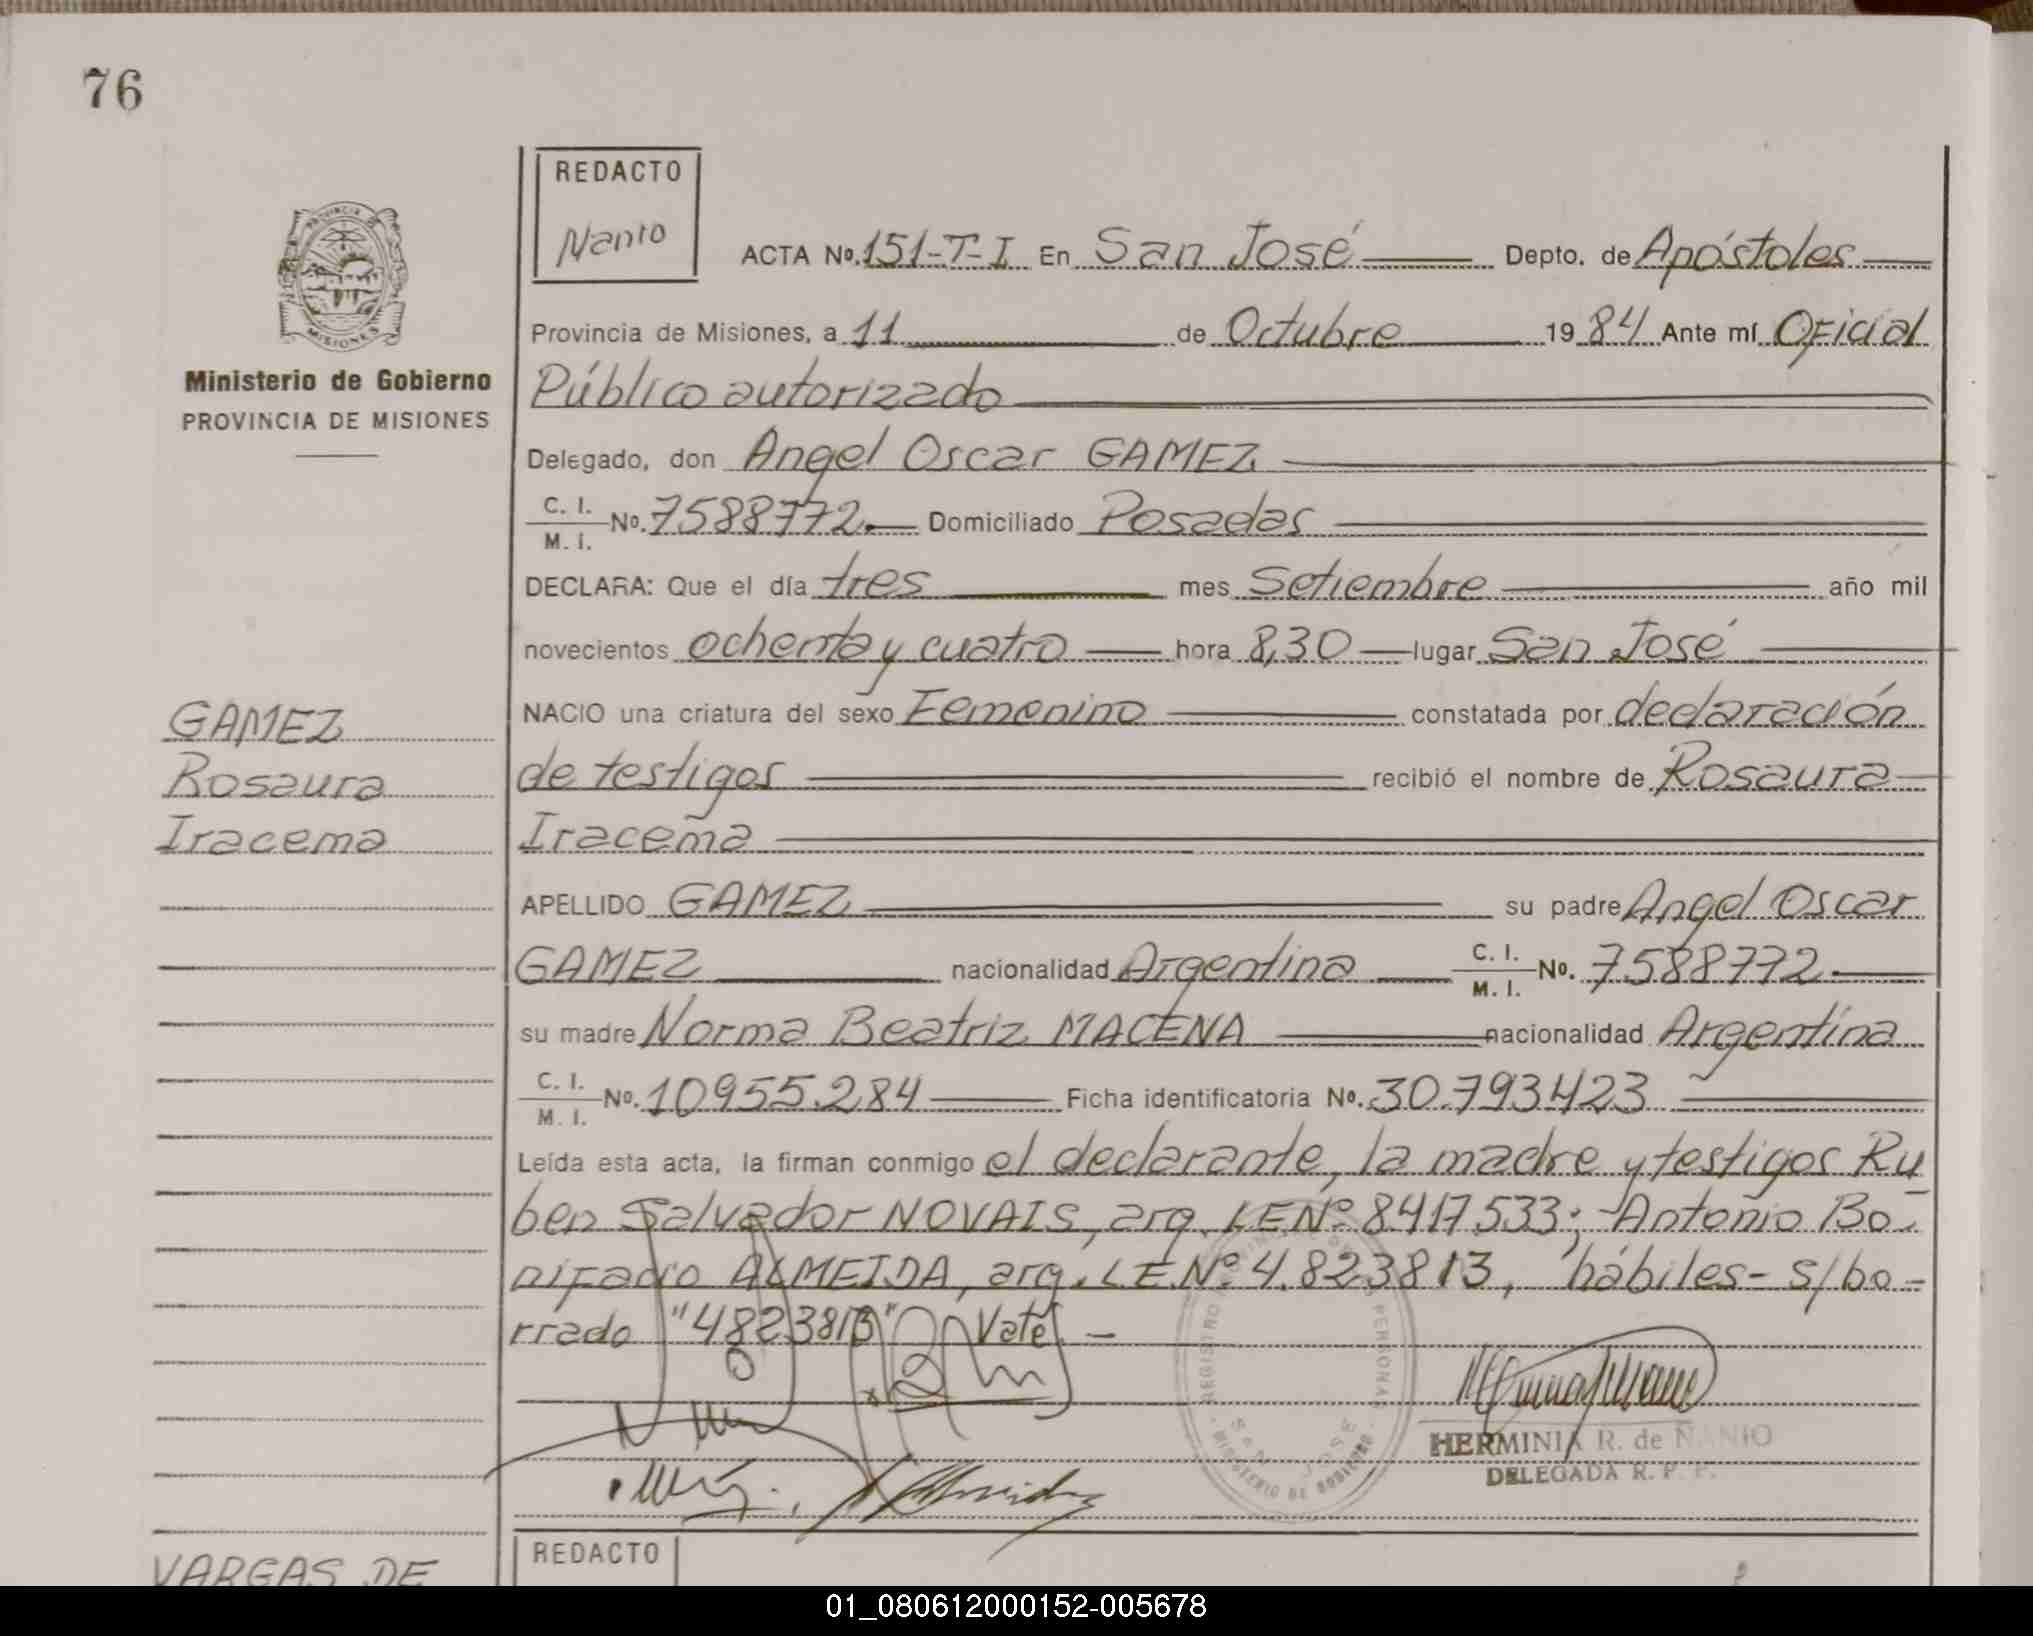 76
REDACTO
Nanio
ACTA No. 151-T-I En San José Depto. de Apóstoles
Provincia de Misiones, a 11 de Octubre 1984 Ante mí Oficial
Público autorizado
Ministerio de Gobierno
PROVINCIA DE MISIONES
Delegado, don Angel Oscar GAMEZ
C. I.
M. I. No. 7588772. Domiciliado Posadas
DECLARA: Que el día tres mes Setiembre año mil
novecientos ochenta y cuatro hora 8,30 lugar San José
NACIO una criatura del sexo Femenino constatada por declaración
de testigos recibió el nombre de Rosaura
Iracema
GAMEZ
Rosaura
Iracema
APELLIDO GAMEZ su padre Angel Oscar
GAMEZ nacionalidad Argentina C. I.
M. I. No. 7.588772.
su madre Norma Beatriz MACENA nacionalidad Argentina
C. I.
M. I. No. 10955.284 Ficha identificatoria No. 30.793423
Leída esta acta, la firman conmigo el declarante, la madre y testigos Ru
ben Salvador NOVAIS, arg. LE Nº 8417533; Antonio Bo-
nifacio ALMEIDA, arg. L.E. Nº 4.823813, hábiles- s/bo-
rrado "4823813" Vale. -
REGISTRO PROVINCIAL DE LAS PERSONAS
SAN JOSE
MINISTERIO DE GOBIERNO
HERMINIA R. de ÑANIO
DELEGADA R. P. P.
VARGAS DE
REDACTO
01_080612000152-005678